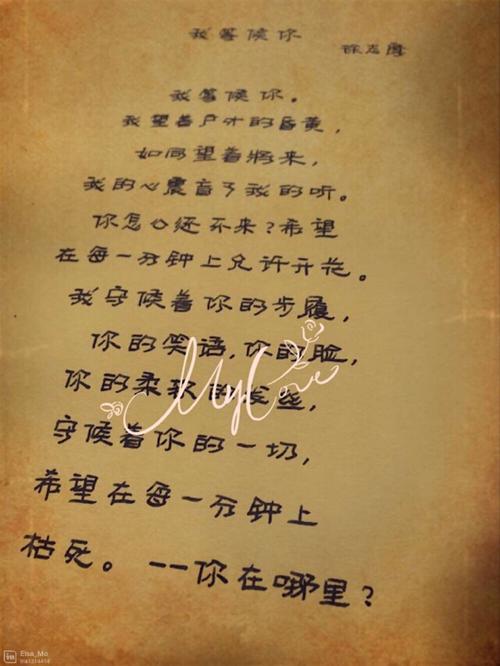 我等候你
徐志摩
我等候你。
我望着户外的昏黄,
如同望着将来,
我的心震盲了我的听。
你怎么还不来?希望
在每一分钟上允许开花。
我守候着你的步履,
你的笑语,你的脸,
你的柔软的发丝,
守候着你的一切,
希望在每一分钟上
枯死。--你在哪里?
My Love
in Elsa_Mo